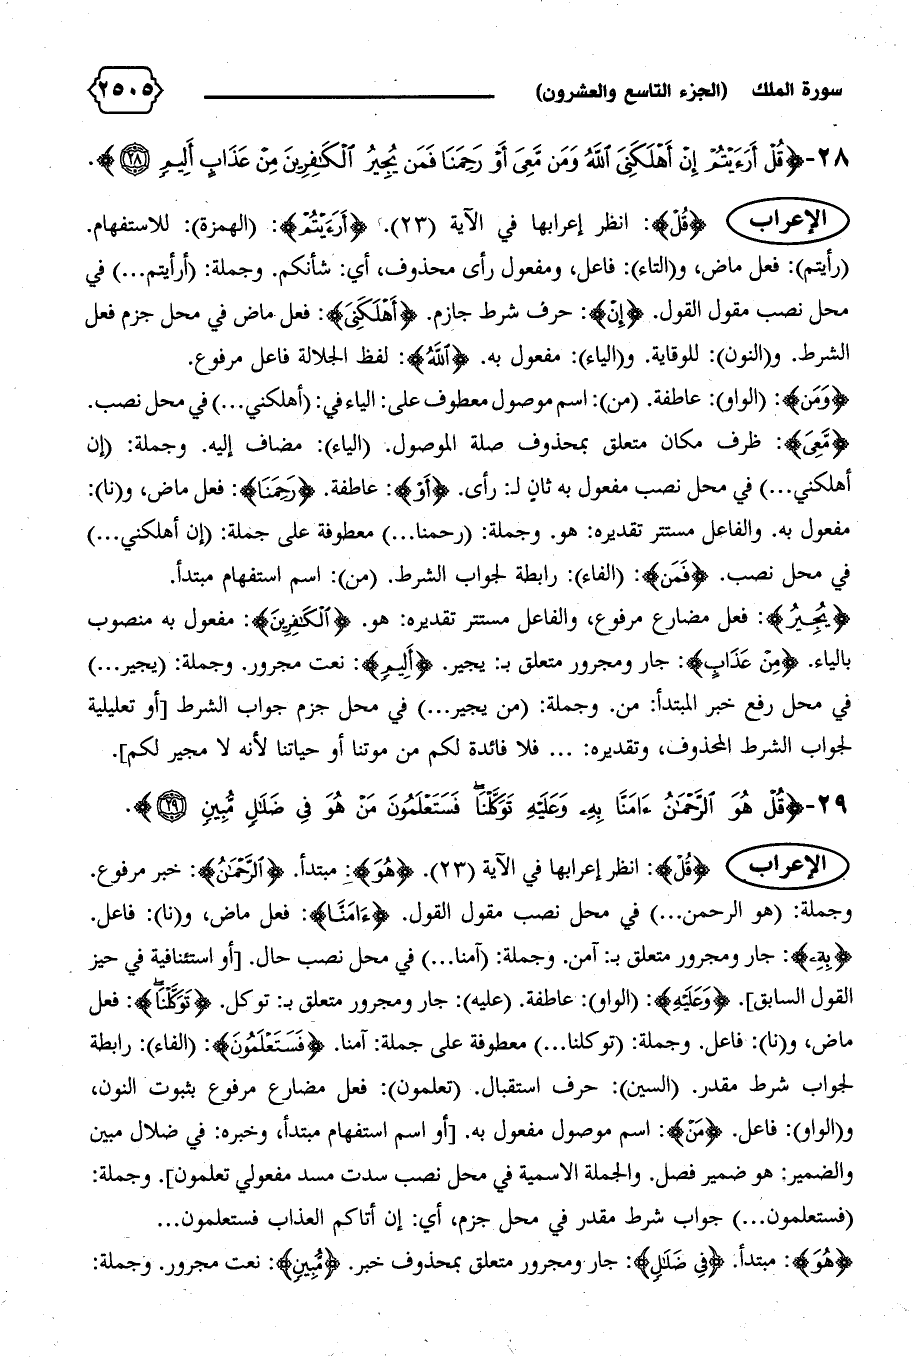 سورة الملك (الجزء التاسع والعشرون) ٢٥٠٥
٢٨-﴿قُلْ أَرَءَيْتُمْ إِنْ أَهْلَكَنِىَ ٱللَّهُ وَمَن مَّعِىَ أَوْ رَحِمَنَا فَمَن يُجِيرُ ٱلْكَـٰفِرِينَ مِنْ عَذَابٍ أَلِيمٍ ٢٨﴾.
الإعراب ﴿قُلْ﴾: انظر إعرابها في الآية (٢٣). ﴿أَرَءَيْتُمْ﴾: (الهمزة): للاستفهام.
(رأيتم): فعل ماض، و(التاء): فاعل، ومفعول رأى محذوف، أي: شأنكم. وجملة: (أرأيتم...) في
محل نصب مقول القول. ﴿إِنْ﴾: حرف شرط جازم. ﴿أَهْلَكَنِىَ﴾: فعل ماض في محل جزم فعل
الشرط. و(النون): للوقاية. و(الياء): مفعول به. ﴿ٱللَّهُ﴾: لفظ الجلالة فاعل مرفوع.
﴿وَمَن﴾: (الواو): عاطفة. (من): اسم موصول معطوف على: الياء في: (أهلكني...) في محل نصب.
﴿مَّعِىَ﴾: ظرف مكان متعلق بمحذوف صلة الموصول. (الياء): مضاف إليه. وجملة: (إن
أهلكني...) في محل نصب مفعول به ثانٍ لـ: رأى. ﴿أَوْ﴾: عاطفة. ﴿رَحِمَنَا﴾: فعل ماض، و(نا):
مفعول به. والفاعل مستتر تقديره: هو. وجملة: (رحمنا...) معطوفة على جملة: (إن أهلكني...)
في محل نصب. ﴿فَمَن﴾: (الفاء): رابطة لجواب الشرط. (من): اسم استفهام مبتدأ.
﴿يُجِيرُ﴾: فعل مضارع مرفوع، والفاعل مستتر تقديره: هو. ﴿ٱلْكَـٰفِرِينَ﴾: مفعول به منصوب
بالياء. ﴿مِنْ عَذَابٍ﴾: جار ومجرور متعلق بـ: يجير. ﴿أَلِيمٍ﴾: نعت مجرور. وجملة: (يجير...)
في محل رفع خبر المبتدأ: من. وجملة: (من يجير...) في محل جزم جواب الشرط [أو تعليلية
لجواب الشرط المحذوف، وتقديره: ... فلا فائدة لكم من موتنا أو حياتنا لأنه لا مجير لكم].
٢٩-﴿قُلْ هُوَ ٱلرَّحْمَـٰنُ ءَامَنَّا بِهِۦ وَعَلَيْهِ تَوَكَّلْنَا ۖ فَسَتَعْلَمُونَ مَنْ هُوَ فِى ضَلَـٰلٍ مُّبِينٍ ٢٩﴾.
الإعراب ﴿قُلْ﴾: انظر إعرابها في الآية (٢٣). ﴿هُوَ﴾: مبتدأ. ﴿ٱلرَّحْمَـٰنُ﴾: خبر مرفوع.
وجملة: (هو الرحمن...) في محل نصب مقول القول. ﴿ءَامَنَّا﴾: فعل ماض، و(نا): فاعل.
﴿بِهِۦ﴾: جار ومجرور متعلق بـ: آمن. وجملة: (آمنا...) في محل نصب حال. [أو استئنافية في حيز
القول السابق]. ﴿وَعَلَيْهِ﴾: (الواو): عاطفة. (عليه): جار ومجرور متعلق بـ: توكل. ﴿تَوَكَّلْنَا ۖ﴾: فعل
ماض، و(نا): فاعل. وجملة: (توكلنا...) معطوفة على جملة: آمنا. ﴿فَسَتَعْلَمُونَ﴾: (الفاء): رابطة
لجواب شرط مقدر. (السين): حرف استقبال. (تعلمون): فعل مضارع مرفوع بثبوت النون،
و(الواو): فاعل. ﴿مَنْ﴾: اسم موصول مفعول به. [أو اسم استفهام مبتدأ، وخبره: في ضلال مبين
والضمير: هو ضمير فصل. والجملة الاسمية في محل نصب سدت مسد مفعولي تعلمون]. وجملة:
(فستعلمون...) جواب شرط مقدر في محل جزم، أي: إن أتاكم العذاب فستعلمون...
﴿هُوَ﴾: مبتدأ. ﴿فِى ضَلَـٰلٍ﴾: جار ومجرور متعلق بمحذوف خبر. ﴿مُّبِينٍ﴾: نعت مجرور. وجملة: